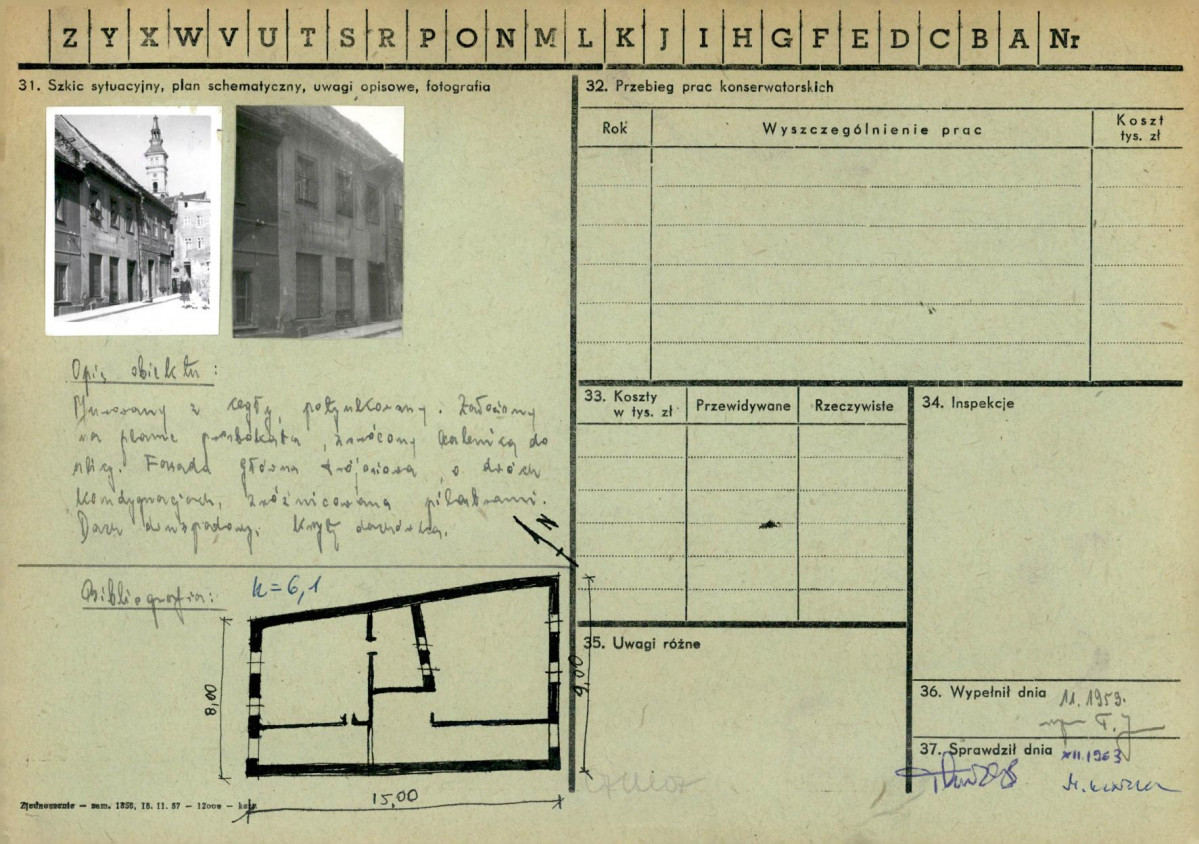 Z Y X W V U T S R P O N M L K J I H G F E D C B A Nr
31. Szkic sytuacyjny, plan schematyczny, uwagi opisowe, fotografia
Opis obiektu:
Murowany z cegły, potynkowany. Założony
na planie prostokąta, zwrócony kalenicą do
ulicy. Fasada główna trójosiowa, o dwóch
kondygnacjach, zróżnicowana pilastrami.
Dach dwuspadowy. Kryty dachówką.
N
Bibliografia:
k=6,1
8,00
9,00
15,00
Zjednoczenie — zam. 1856, 18. 11. 57 — 12000 —
32. Przebieg prac konserwatorskich
Rok
Wyszczególnienie prac
Koszt
tys. zł
33. Koszty
w tys. zł
Przewidywane
Rzeczywiste
34. Inspekcje
35. Uwagi różne
36. Wypełnił dnia 11.1959.
37. Sprawdził dnia XII.1963